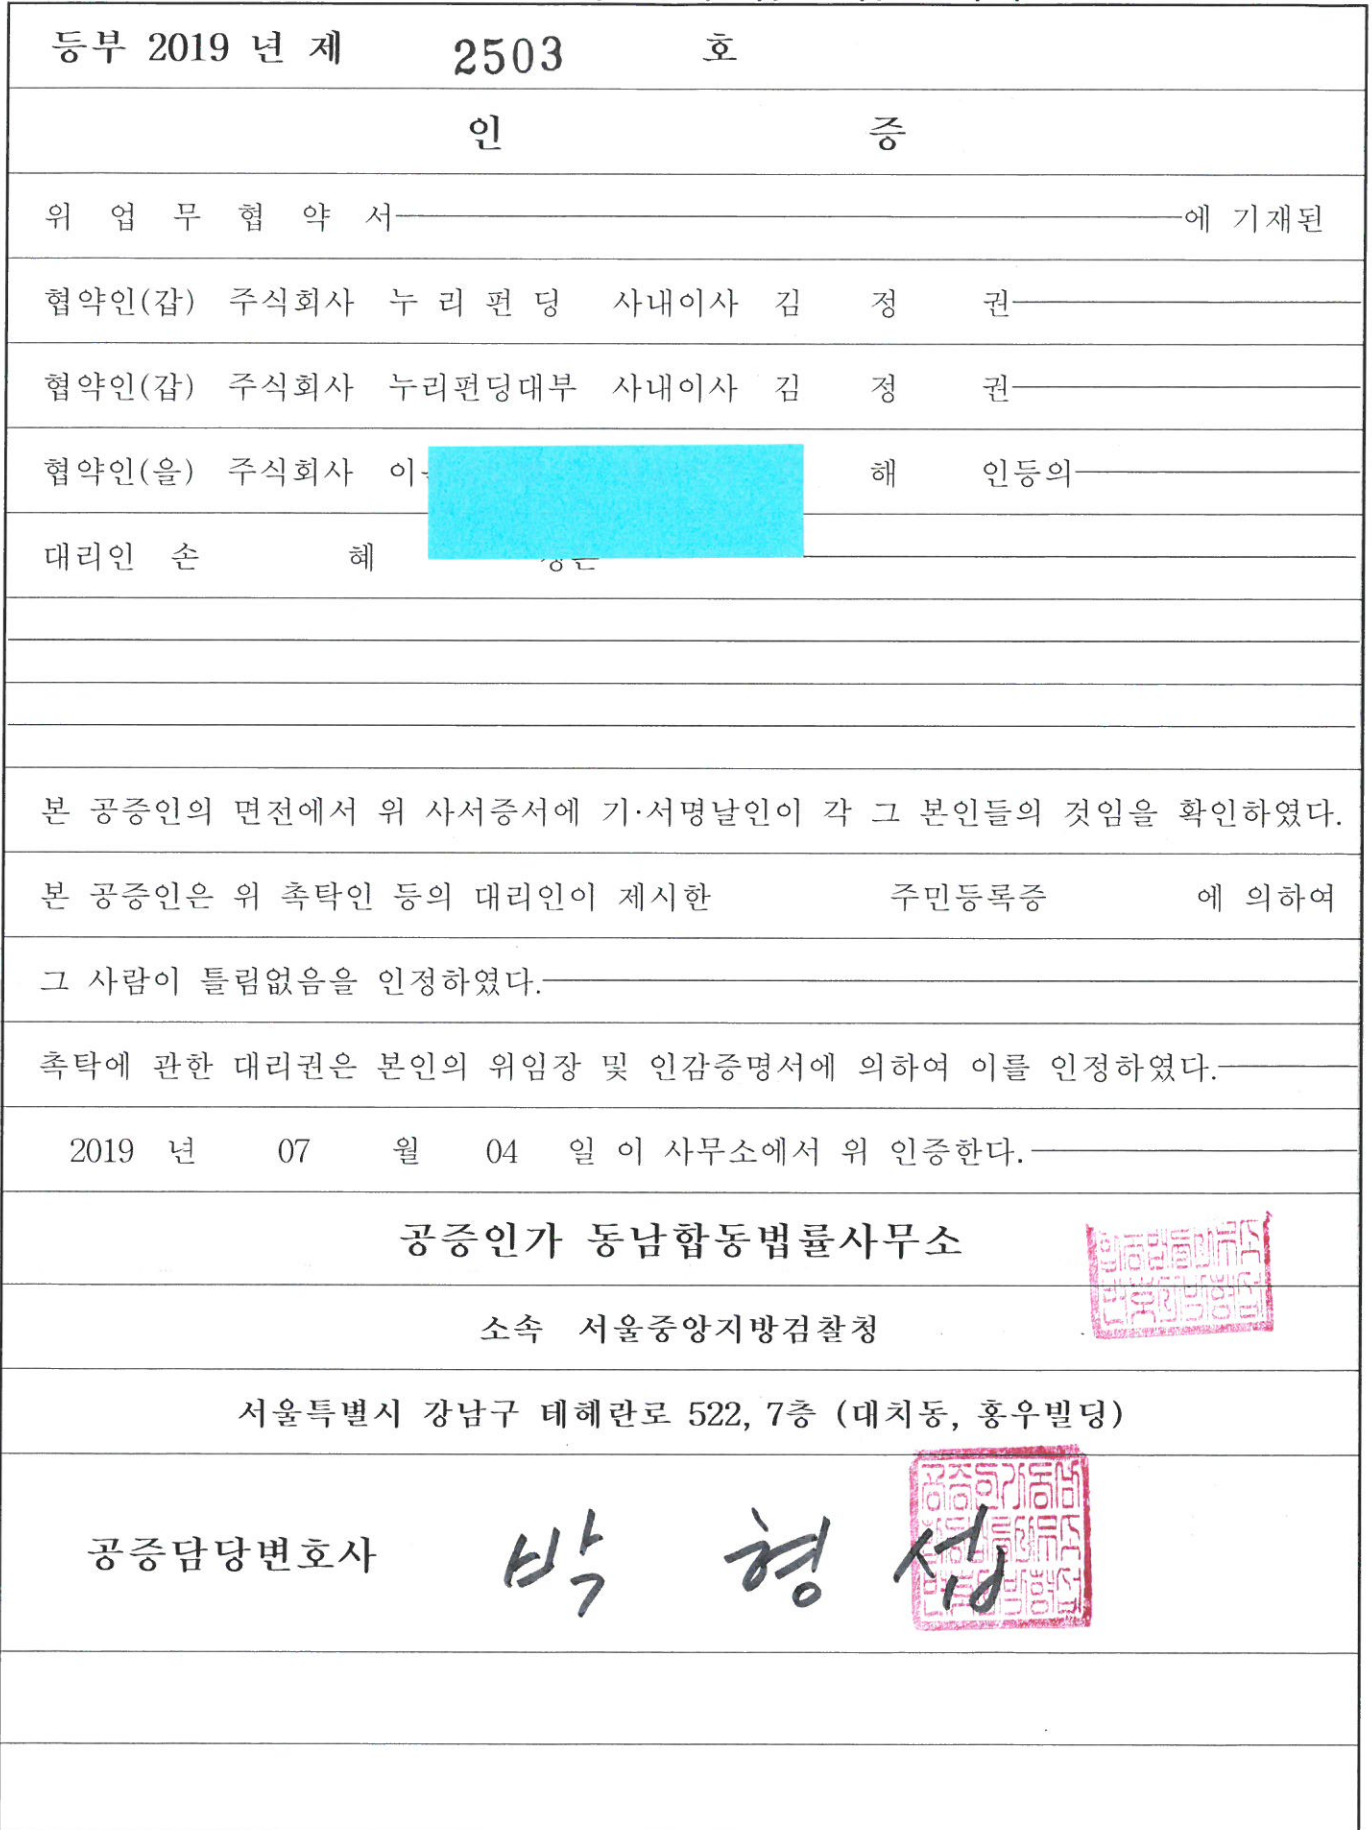 등부 2019 년 제 2503 호
인 증
위 업 무 협 약 서 에 기재된
협약인(갑) 주식회사 누 리 펀 딩 사내이사 김 정 권
협약인(갑) 주식회사 누리펀딩대부 사내이사 김 정 권
협약인(을) 주식회사 해 인등의
대리인 손 혜
본 공증인의 면전에서 위 사서증서에 기·서명날인이 각 그 본인들의 것임을 확인하였다.
본 공증인은 위 촉탁인 등의 대리인이 제시한 주민등록증 에 의하여
그 사람이 틀림없음을 인정하였다.
촉탁에 관한 대리권은 본인의 위임장 및 인감증명서에 의하여 이를 인정하였다.
2019 년 07 월 04 일 이 사무소에서 위 인증한다.
공증인가 동남합동법률사무소
소속 서울중앙지방검찰청
서울특별시 강남구 테헤란로 522, 7층 (대치동, 홍우빌딩)
공증담당변호사 박 형 섭